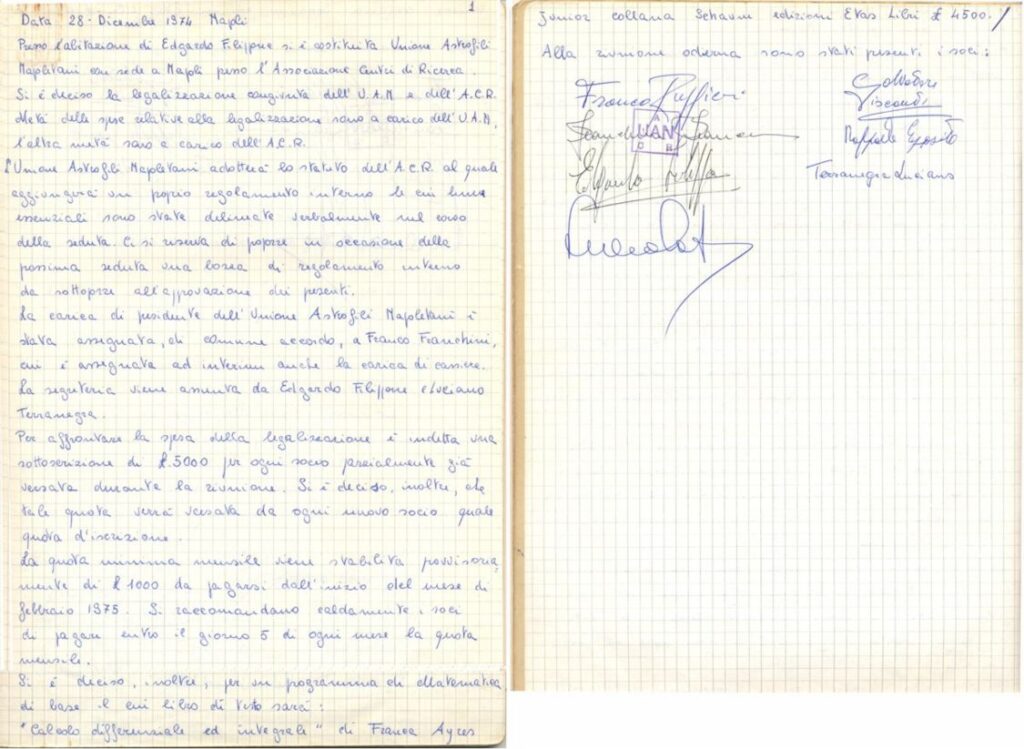 1
Data 28-Dicembre 1974 Napoli
Presso l'abitazione di Edgardo Filippone si è costituita Unione Astrofili
Napoletani con sede a Napoli presso l'Associazione Centri di Ricerca.
Si è deciso la legalizzazione congiunta dell'U.A.N e dell'A.C.R.
Metà delle spese relative alla legalizzazione sono a carico dell'U.A.N,
l'altra metà sono a carico dell'A.C.R.
L'Unione Astrofili Napoletani adotterà lo statuto dell'A.C.R. al quale
aggiungerà un proprio regolamento interno le cui linee
essenziali sono state delineate verbalmente nel corso
della seduta. Ci si riserva di proporre in occasione della
prossima seduta una bozza di regolamento interno
da sottoporre all'approvazione dei presenti.
La carica di presidente dell'Unione Astrofili Napoletani è
stata assegnata, di comune accordo, a Franco Franchini,
cui è assegnata ad interim anche la carica di cassiere.
La segreteria viene assunta da Edgardo Filippone e Luciano
Terranegra.
Per affrontare la spesa della legalizzazione è indetta una
sottoscrizione di £.5000 per ogni socio parzialmente già
versata durante la riunione. Si è deciso, inoltre, che
tale quota verrà versata da ogni nuovo socio quale
quota d'iscrizione.
La quota minima mensile viene stabilita provvisoria-
mente di £ 1000 da pagarsi dall'inizio del mese di
febbraio 1975. Si raccomandano caldamente i soci
di pagare entro il giorno 5 di ogni mese la quota
mensile.
Si è deciso, inoltre, per un programma di Matematica
di base il cui libro di testo sarà:
"Calcolo differenziale ed integrale" di Franca Ayres
Junior collana Schaum edizioni Etas Libri £ 4500./
Alla riunione odierna sono stati presenti i soci:
Franco Ruffieri
Salvatore
Visconti
UAN
Raffaele Esposito
Terranegra Luciano